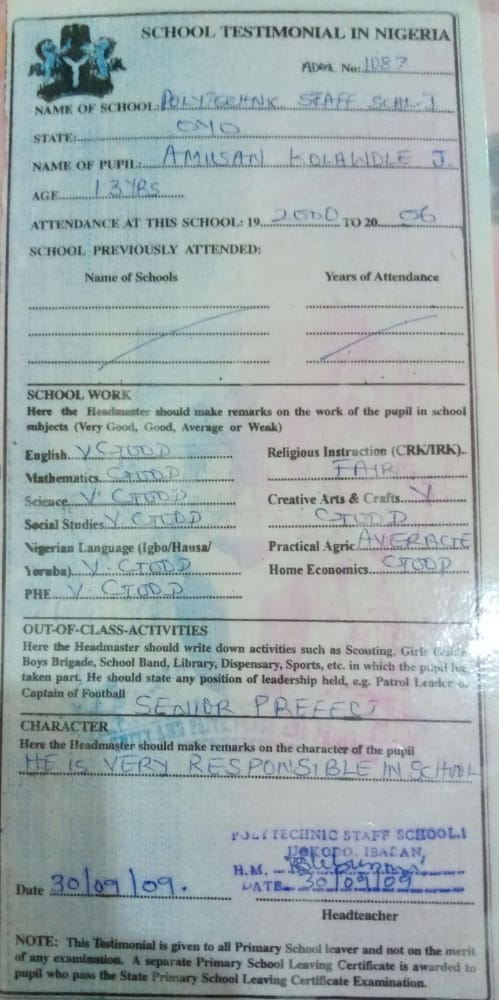 SCHOOL TESTIMONIAL IN NIGERIA
ADM. No: 1087
NAME OF SCHOOL: POLYTECHNIC STAFF SCHL. I
STATE: OYO
NAME OF PUPIL: AMUSAN KOLAWOLE J.
AGE 13YRS
ATTENDANCE AT THIS SCHOOL: 19 2000 TO 20 06
SCHOOL PREVIOUSLY ATTENDED:
Name of Schools Years of Attendance
SCHOOL WORK
Here the Headmaster should make remarks on the work of the pupil in school
subjects (Very Good, Good, Average or Weak)
English V GOOD
Mathematics GOOD
Science V. GOOD
Social Studies V. GOOD
Nigerian Language (Igbo/Hausa/
Yoruba) V. GOOD
PHE V. GOOD
Religious Instruction (CRK/IRK)
FAIR
Creative Arts & Crafts V
GOOD
Practical Agric AVERAGE
Home Economics GOOD
OUT-OF-CLASS-ACTIVITIES
Here the Headmaster should write down activities such as Scouting, Girls Guide
Boys Brigade, School Band, Library, Dispensary, Sports, etc. in which the pupil has
taken part. He should state any position of leadership held, e.g. Patrol Leader
Captain of Football SENIOR PREFECT
CHARACTER
Here the Headmaster should make remarks on the character of the pupil
HE IS VERY RESPONSIBLE IN SCHOOL
POLYTECHNIC STAFF SCHOOL.1
IJOKODO, IBADAN,
H.M.
DATE 30/09/09
Date 30/09/09.
Headteacher
NOTE: This Testimonial is given to all Primary School leaver and not on the merit
of any examination. A separate Primary School Leaving Certificate is awarded to
pupil who pass the State Primary School Leaving Certificate Examination.